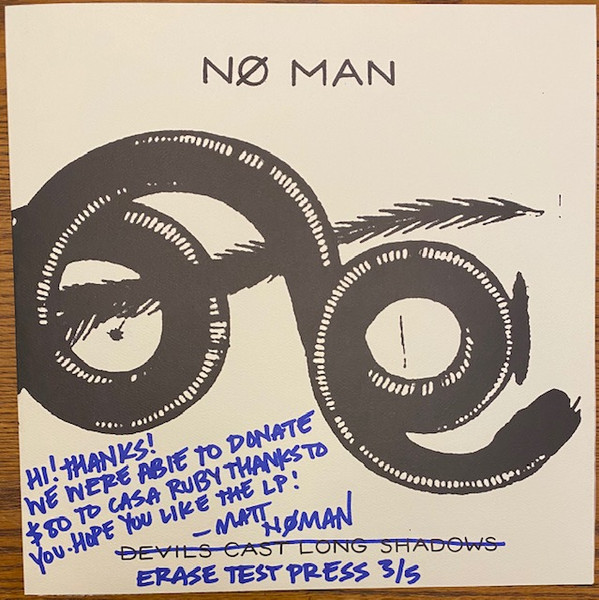 NØ MAN
HI! THANKS!
WE WERE ABLE TO DONATE
$80 TO CASA RUBY THANKS TO
YOU. HOPE YOU LIKE THE LP!
– MATT
NØMAN
DEVILS CAST LONG SHADOWS
ERASE TEST PRESS 3/5